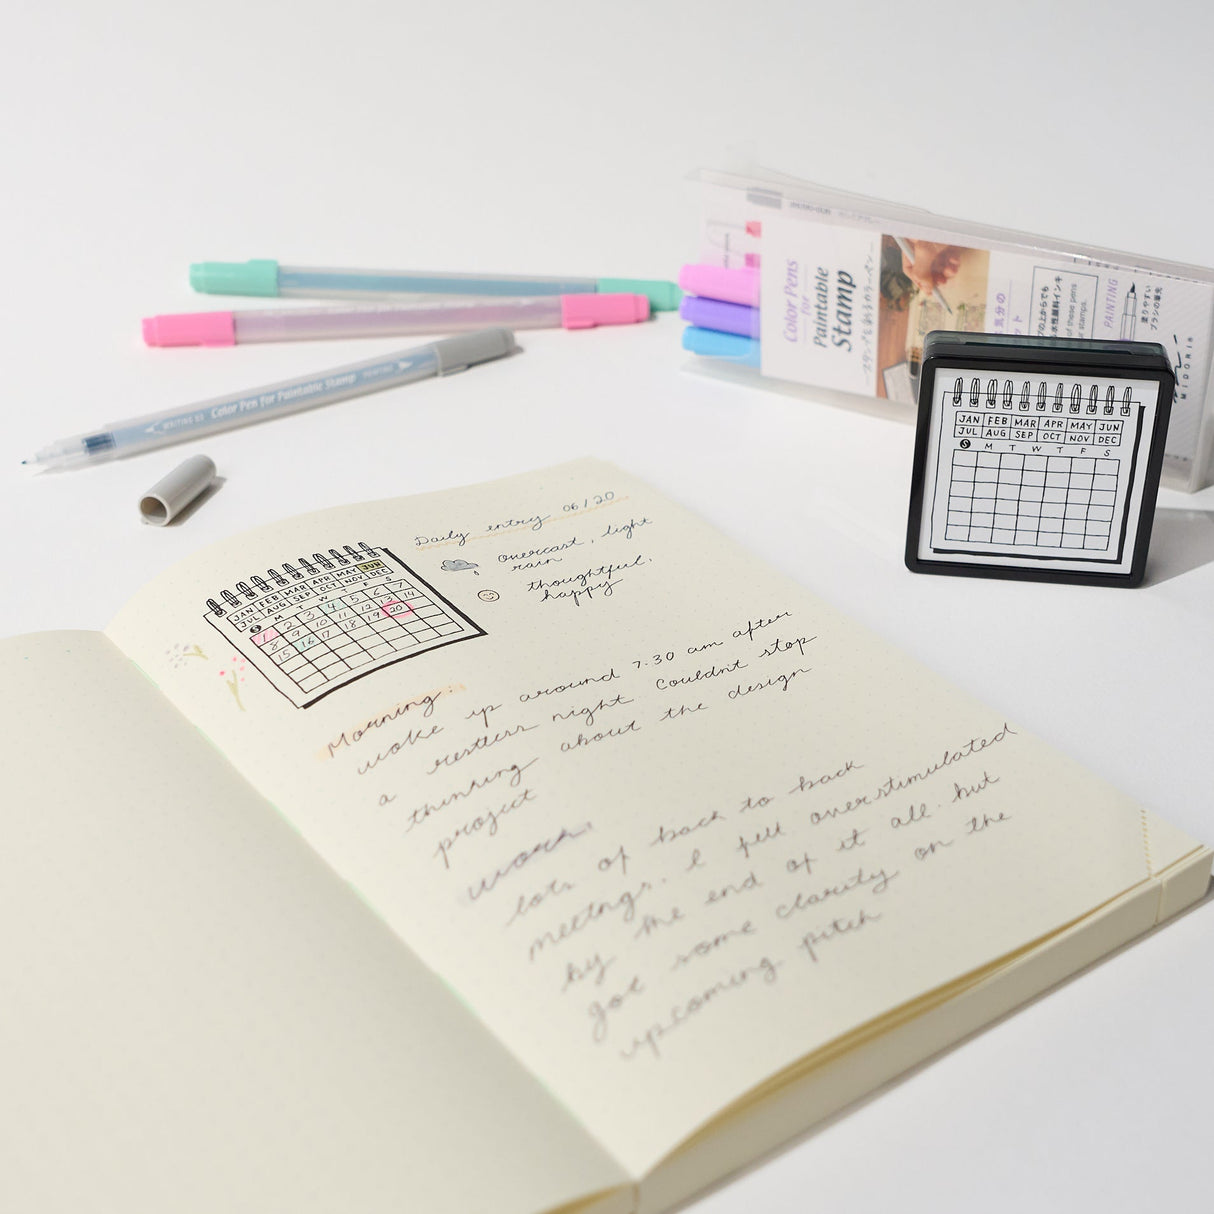 Color Pens
for
Paintable
Stamp
スタンプも塗れるカラーペン
PAINTING
塗りやすい
ブラシの筆先
of these pens
stamps.
MIDORI
WRITING 0.3 Color Pen for Paintable Stamp PAINTING
JAN FEB MAR APR MAY JUN
JUL AUG SEP OCT NOV DEC
S M T W T F S
Daily entry 06/20
overcast, light
rain
thoughtful,
happy
JAN FEB MAR APR MAY JUN
JUL AUG SEP OCT NOV DEC
S M T W T F S
1 2 3 4 5 6 7
8 9 10 11 12 13 14
15 16 17 18 19 20
Morning:
woke up around 7.30 am after
a restless night. Couldn't stop
thinking about the design
project
Work:
lots of back to back
meetings. I fell overstimulated
by the end of it all. but
got some clarity on the
upcoming pitch